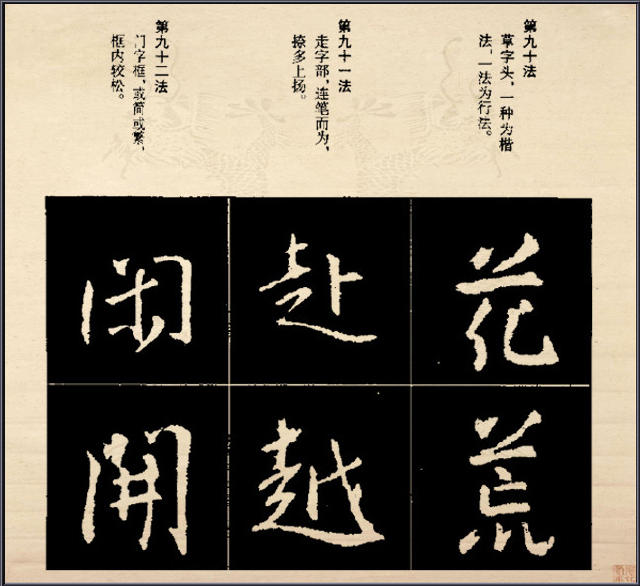 第九十法
草字头，一种为楷
法，一法为行法。
第九十一法
走字部，连笔而为，
捺多上扬。
第九十二法
门字框，或简或繁，
框内较松。
花
荒
赴
越
闲
開